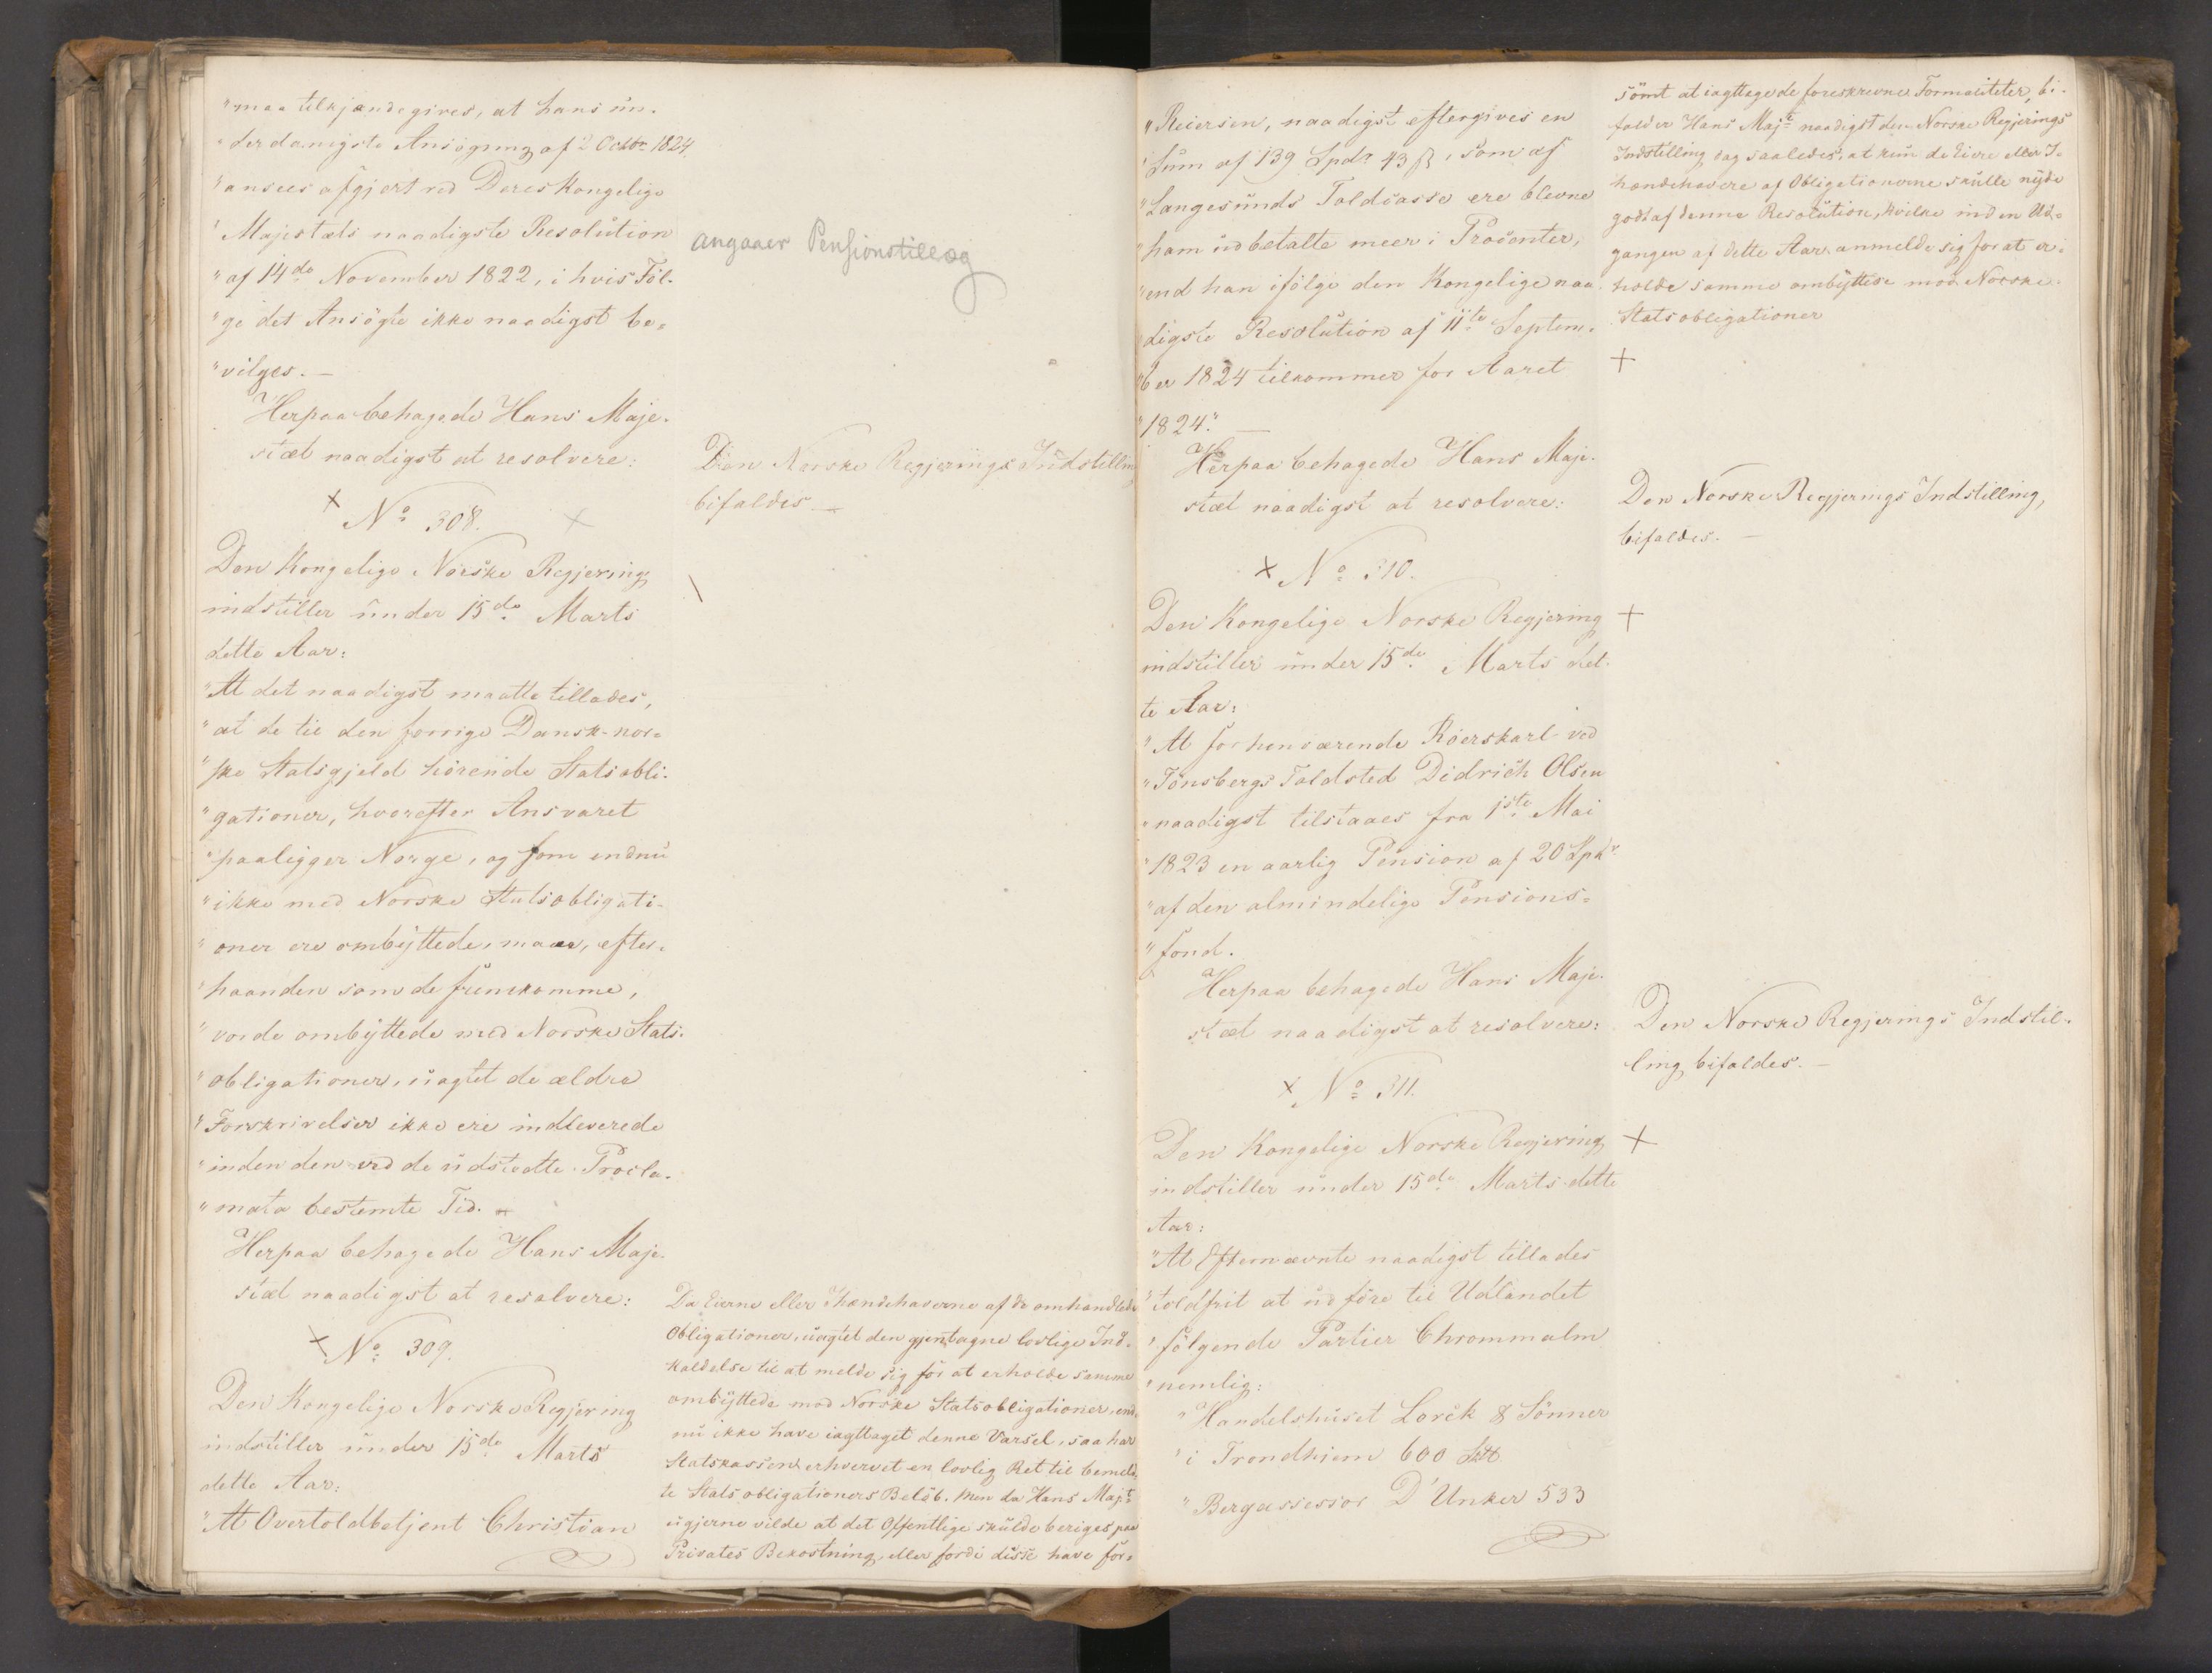 "maa tilkjendegives, at hans ün-
"derdanigste Ansögning af 2 Octbr 1824
"ansees afgjort ved Deres Kongelige
"Majestæts naadigste Resolütion
"af 14de November 1822, i hvis Föl-
"ge det Ansögte ikke naadigst be-
"vilges.—
Herpaa behagede Hans Maje-
stæt naadigst at resolvere:
+ No 308. +
Den Kongelige Norske Regjering
indstiller ünder 15de Marts
dette Aar:
"At det naadigst maatte tillades,
"at de til den forrige Dansk-nor-
"ske Statsgjeld hörende Statsobli-
"gationer, hvorefter Ansvaret
"paaligger Norge, og som endnü
"ikke med Norske Statsobligati-
"oner ere ombÿttede, maae, efter-
"haanden som de fremkomme,
"vorde ombÿttede med Norske Stats-
"obligationer, üagtet de ældre
"Forskrivelser ikke ere indleverede
"inden den ved de üdstædte Procla-
"mata bestemte Tid.
Herpaa behagede Hans Maje-
stæt naadigst at resolvere:
+ No 309.
Den Kongelige Norske Regjering
indstiller ünder 15de Marts
dette Aar:
"At Overtoldbetjent Christian
angaaer Pensionstillæg
Den Norske Regjerings Indstilling
bifaldes.—
Da Eierne eller Ihændehaverne af de omhandlede
Obligationer, üagtet den gjentagne lovlige Ind-
kaldelse til at melde sig for at erholde samme
ombÿttede mod Norske Statsobligationer, end-
nü ikke have iagttaget denne Varsel, saa har
Statskassen erhvervet en lovlig Ret til bemeld-
te Statsobligationers Belöb. Men da Hans Majt
ügjerne vilde at det Offentlige skülde beriges paa
Privates Bekostning, eller fordi disse have for-
"Reiersen, naadigst eftergives en
"Süm af 139 Spdr 43 ß, som af
"Langesünds Toldcasse ere blevne
"ham üdbetalte meer i Procenter,
"end han ifölge den Kongelige naa-
"digste Resolütion af 11te Septem-
"ber 1824 tilkommer for Aaret
"1824". —
Herpaa behagede Hans Maje-
stæt naadigst at resolvere:
+ No 310.
Den Kongelige Norske Regjering
indstiller ünder 15de Marts det-
te Aar:
"At forhenværende Roerskarl ved
"Tönsbergs Toldsted Didrich Olsen
"naadigst tilstaaes fra 1ste Mai
"1823 en aarlig Pension af 20 Spdr
"af den almindelige Pensions-
"fond.
Herpaa behagede Hans Maje-
stæt naadigst at resolvere:
+ No 311.
Den Kongelige Norske Regjering
indstiller ünder 15de Marts dette
Aar:
"At Efternævnte naadigst tillades
"toldfrit at üdföre til Udlandet
"fölgende Partier Chrommalm
"nemlig:
"Handelshüset Lorck & Sönner
"i Trondhiem 600 Sktt
"Bergassessor D'Unker 533
sömt at iagttage de foreskrevne Formaliteter, bi-
falder Hans Majt naadigst den Norske Regjerings
Indstilling dog saaledes, at kün de Eiere eller I-
hændehavere af Obligationerne skülle nÿde
godt af denne Resolütion, hvilke inden Ud-
gangen af dette Aar anmelde sig for at er-
holde samme ombÿttede mod Norske
Statsobligationer
+
Den Norske Regjerings Indstilling,
bifaldes. —
+
Den Norske Regjerings Indstil-
ling bifaldes. —
+